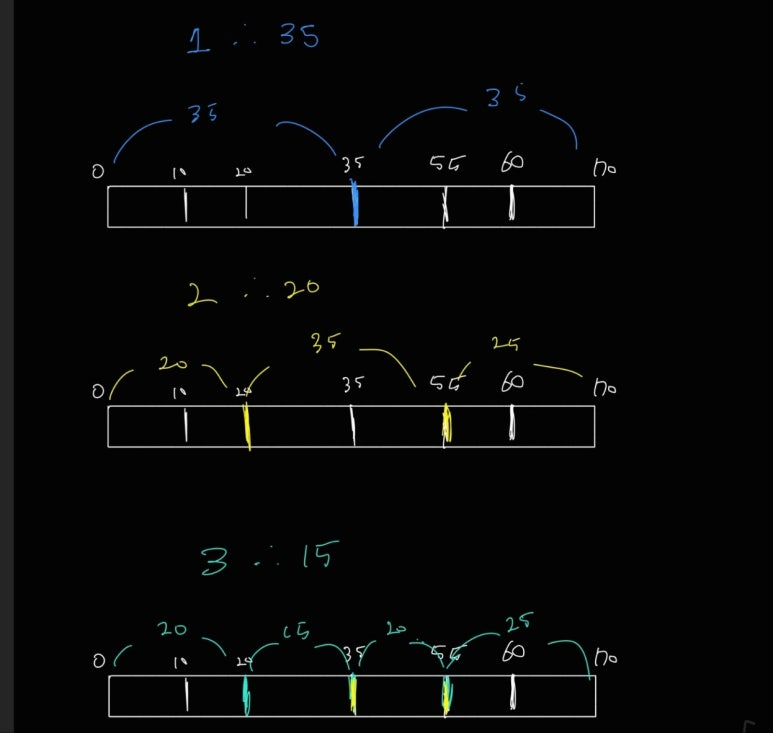 1 ∴ 35
35 35
0 10 20 35 55 60 70
2 ∴ 20
20 35 25
0 10 20 35 55 60 70
3 ∴ 15
20 15 20 25
0 10 20 35 55 60 70